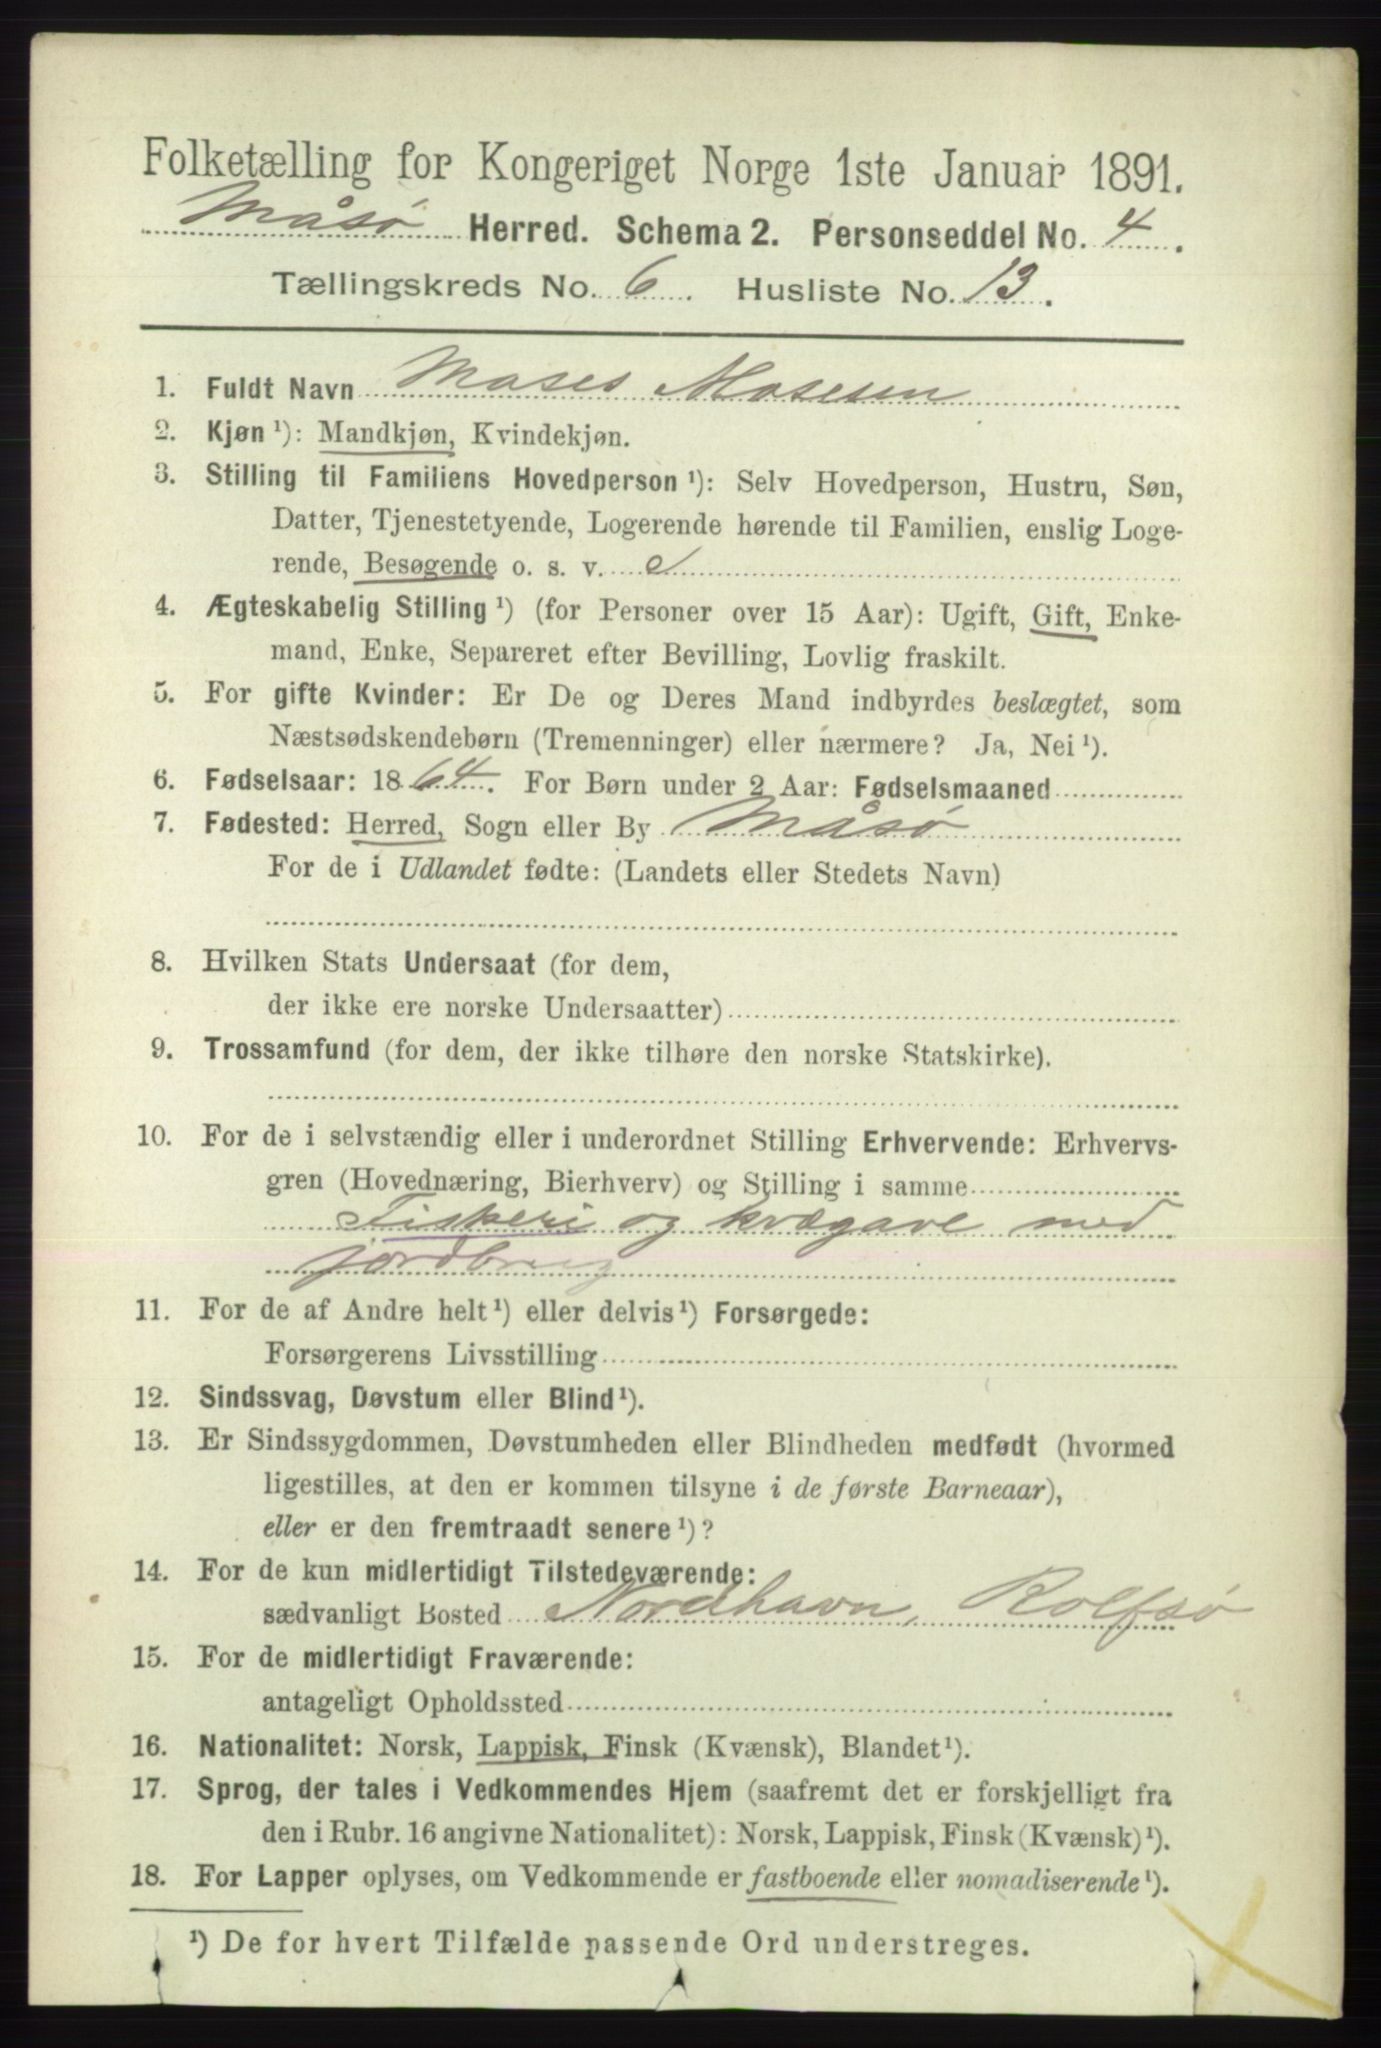 Folketælling for Kongeriget Norge 1ste Januar 1891.
Måsø Herred. Schema 2. Personseddel No. 4.
Tællingskreds No. 6. Husliste No. 13.
1. Fuldt Navn Moses Mosesen
2. Kjøn ¹): Mandkjøn, Kvindekjøn.
3. Stilling til Familiens Hovedperson ¹): Selv Hovedperson, Hustru, Søn,
Datter, Tjenestetyende, Logerende hørende til Familien, enslig Loge-
rende, Besøgende o. s. v.
4. Ægteskabelig Stilling ¹) (for Personer over 15 Aar): Ugift, Gift, Enke-
mand, Enke, Separeret efter Bevilling, Lovlig fraskilt.
5. For gifte Kvinder: Er De og Deres Mand indbyrdes beslægtet, som
Næstsødskendebørn (Tremenninger) eller nærmere? Ja, Nei ¹).
6. Fødselsaar: 1864. For Børn under 2 Aar: Fødselsmaaned
7. Fødested: Herred, Sogn eller By Måsø
For de i Udlandet fødte: (Landets eller Stedets Navn)
8. Hvilken Stats Undersaat (for dem,
der ikke ere norske Undersaatter)
9. Trossamfund (for dem, der ikke tilhøre den norske Statskirke).
10. For de i selvstændig eller i underordnet Stilling Erhvervende: Erhvervs-
gren (Hovednæring, Bierhverv) og Stilling i samme
Fiskeri og kvægavl med
jordbrug
11. For de af Andre helt ¹) eller delvis ¹) Forsørgede:
Forsørgerens Livsstilling
12. Sindssvag, Døvstum eller Blind ¹).
13. Er Sindssygdommen, Døvstumheden eller Blindheden medfødt (hvormed
ligestilles, at den er kommen tilsyne i de første Barneaar),
eller er den fremtraadt senere ¹)?
14. For de kun midlertidigt Tilstedeværende:
sædvanligt Bosted Nordhavn, Rolfsø
15. For de midlertidigt Fraværende:
antageligt Opholdssted
16. Nationalitet: Norsk, Lappisk, Finsk (Kvænsk), Blandet ¹).
17. Sprog, der tales i Vedkommendes Hjem (saafremt det er forskjelligt fra
den i Rubr. 16 angivne Nationalitet): Norsk, Lappisk, Finsk (Kvænsk) ¹).
18. For Lapper oplyses, om Vedkommende er fastboende eller nomadiserende ¹).
¹) De for hvert Tilfælde passende Ord understreges.